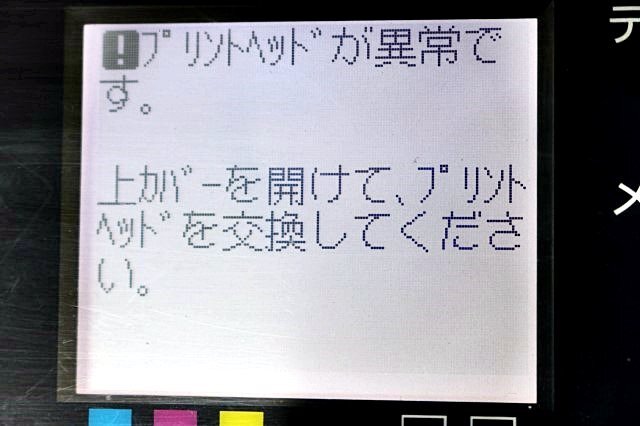 !ﾌﾟﾘﾝﾄﾍｯﾄﾞが異常で
す。
上ｶﾊﾞｰを開けて､ﾌﾟﾘﾝﾄ
ﾍｯﾄﾞを交換してくださ
い。
デ
メ